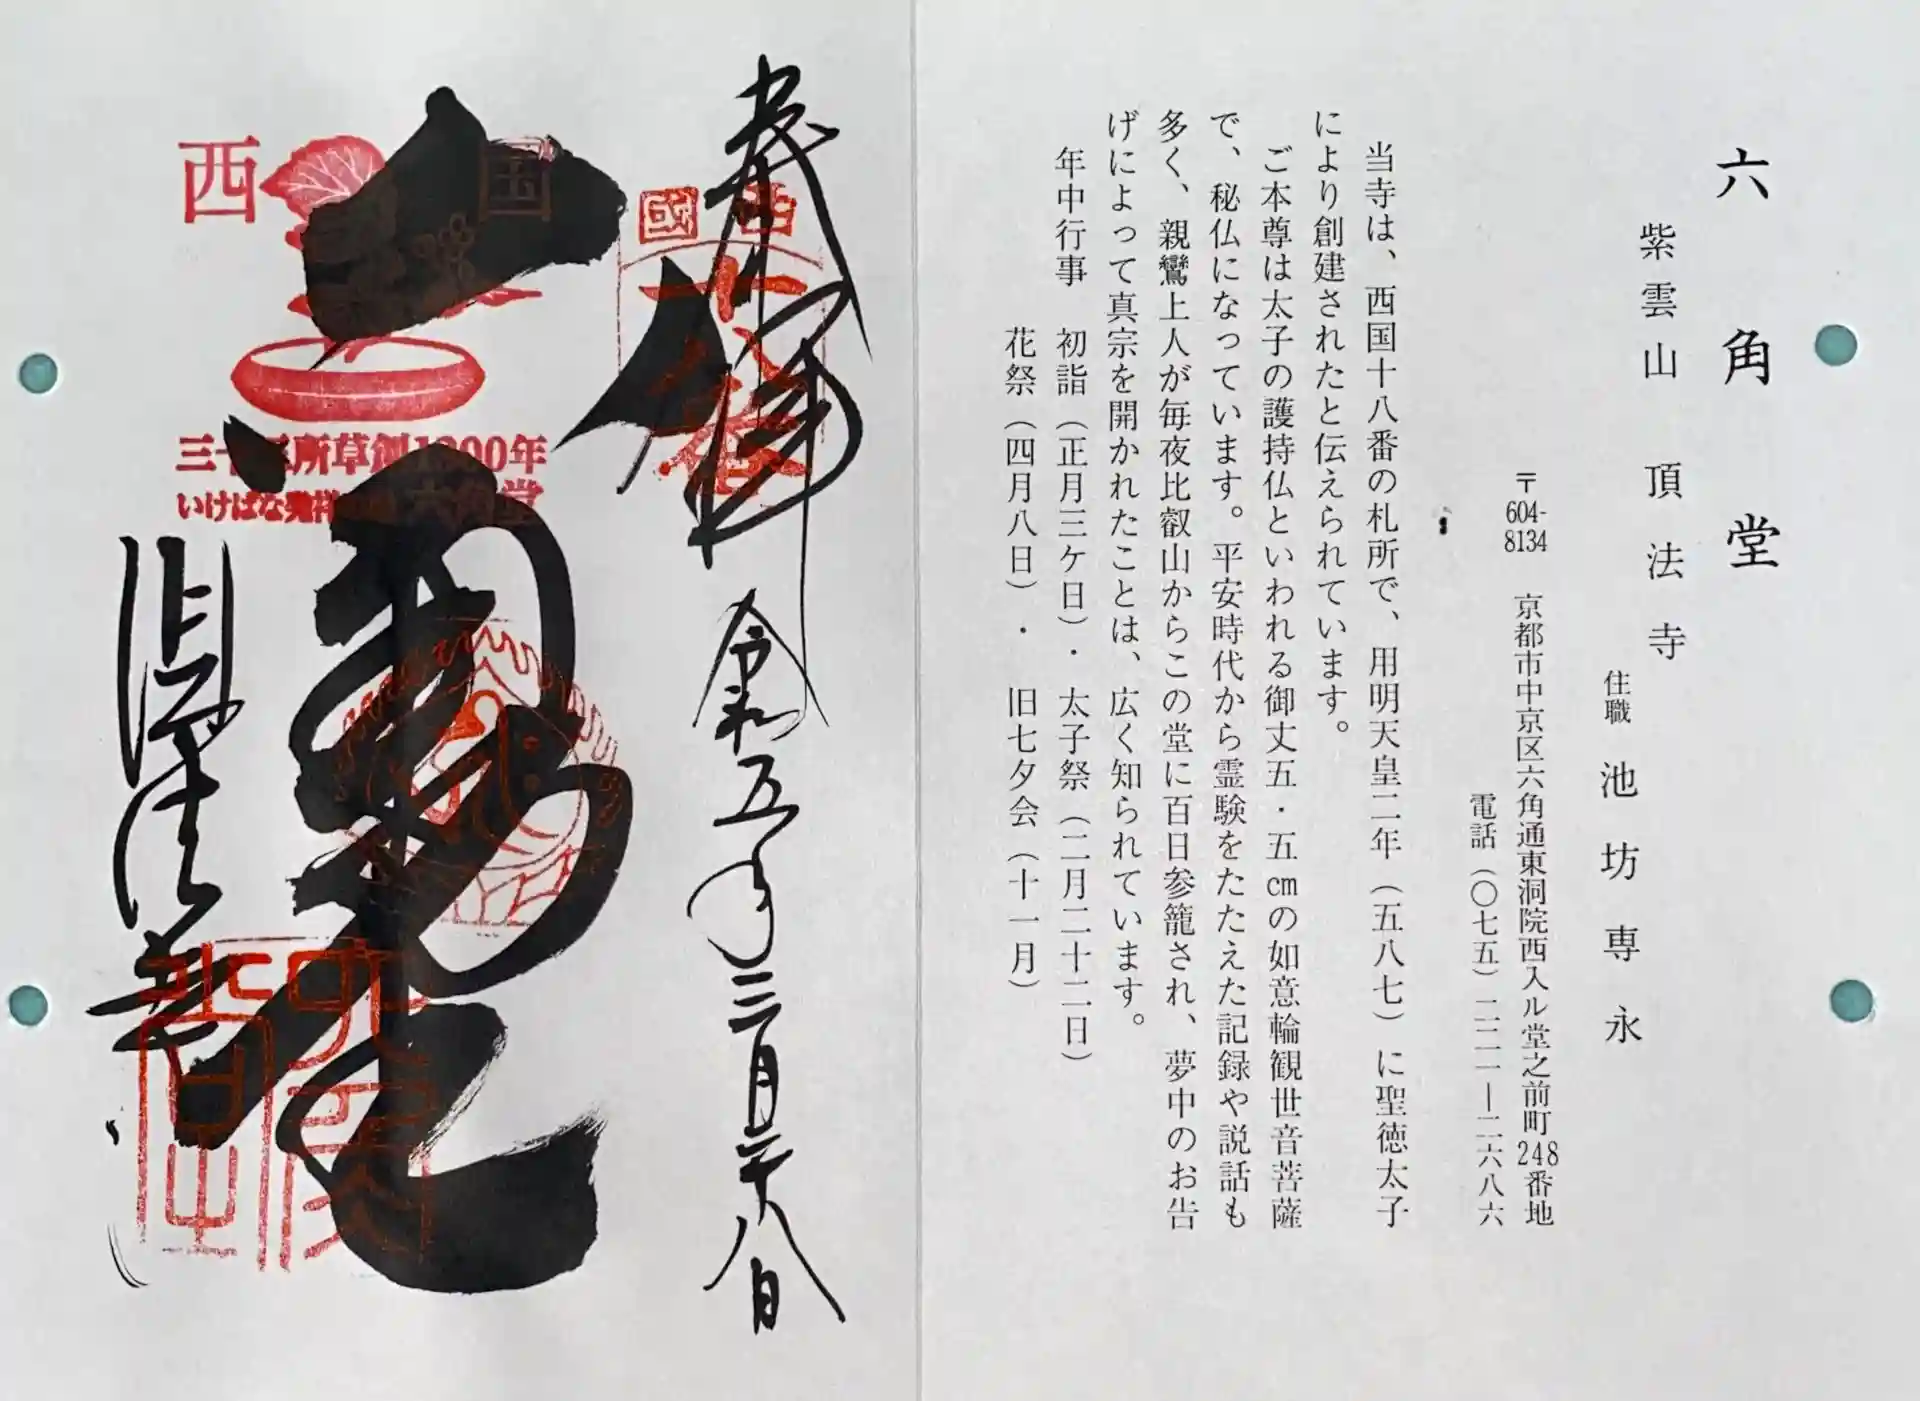 六角堂
紫雲山 頂法寺
住職 池坊専永
〒604-8134 京都市中京区六角通東洞院西入ル堂之前町248番地
電話（〇七五）二二一―二六八六
当寺は、西国十八番の札所で、用明天皇二年（五八七）に聖徳太子
により創建されたと伝えられています。
ご本尊は太子の護持仏といわれる御丈五・五cmの如意輪観世音菩薩
で、秘仏になっています。平安時代から霊験をたたえた記録や説話も
多く、親鸞上人が毎夜比叡山からこの堂に百日参籠され、夢中のお告
げによって真宗を開かれたことは、広く知られています。
年中行事 初詣（正月三ケ日）・太子祭（二月二十二日）
花祭（四月八日）・旧七夕会（十一月）
奉拝 令和五年三月二十八日
西國
十八番
西国
三十三所草創1300年
いけばな発祥の地 六角堂
六角堂
頂法寺